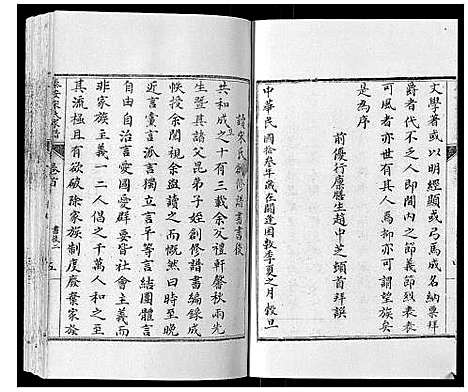 文學著或以明經顯或弓馬成名納粟拜
爵者代不乏人即閨內之節義節烈表表
可風者亦世有其人焉抑亦可謂望族矣
是為序
前優行廩膳生趙中芝頓首拜譔
中華民國拾叁年歲在閼逢困敦季夏之月穀旦
讀宋氏創修譜書書後
共和成立之十有三載余小憩軒馨秋雨先
生暨其諸父昆弟子姪創修譜書編錄成
恢授余閱視余盥讀之而慨然曰時至晚
近言黨言派言獨立言平等言結團體言
自由自治言愛國愛群要皆社會主義而
非家族主義一二人倡之千萬人和之
其流極且有欲破除家族制度廢棄家族
卷首
書後二
五